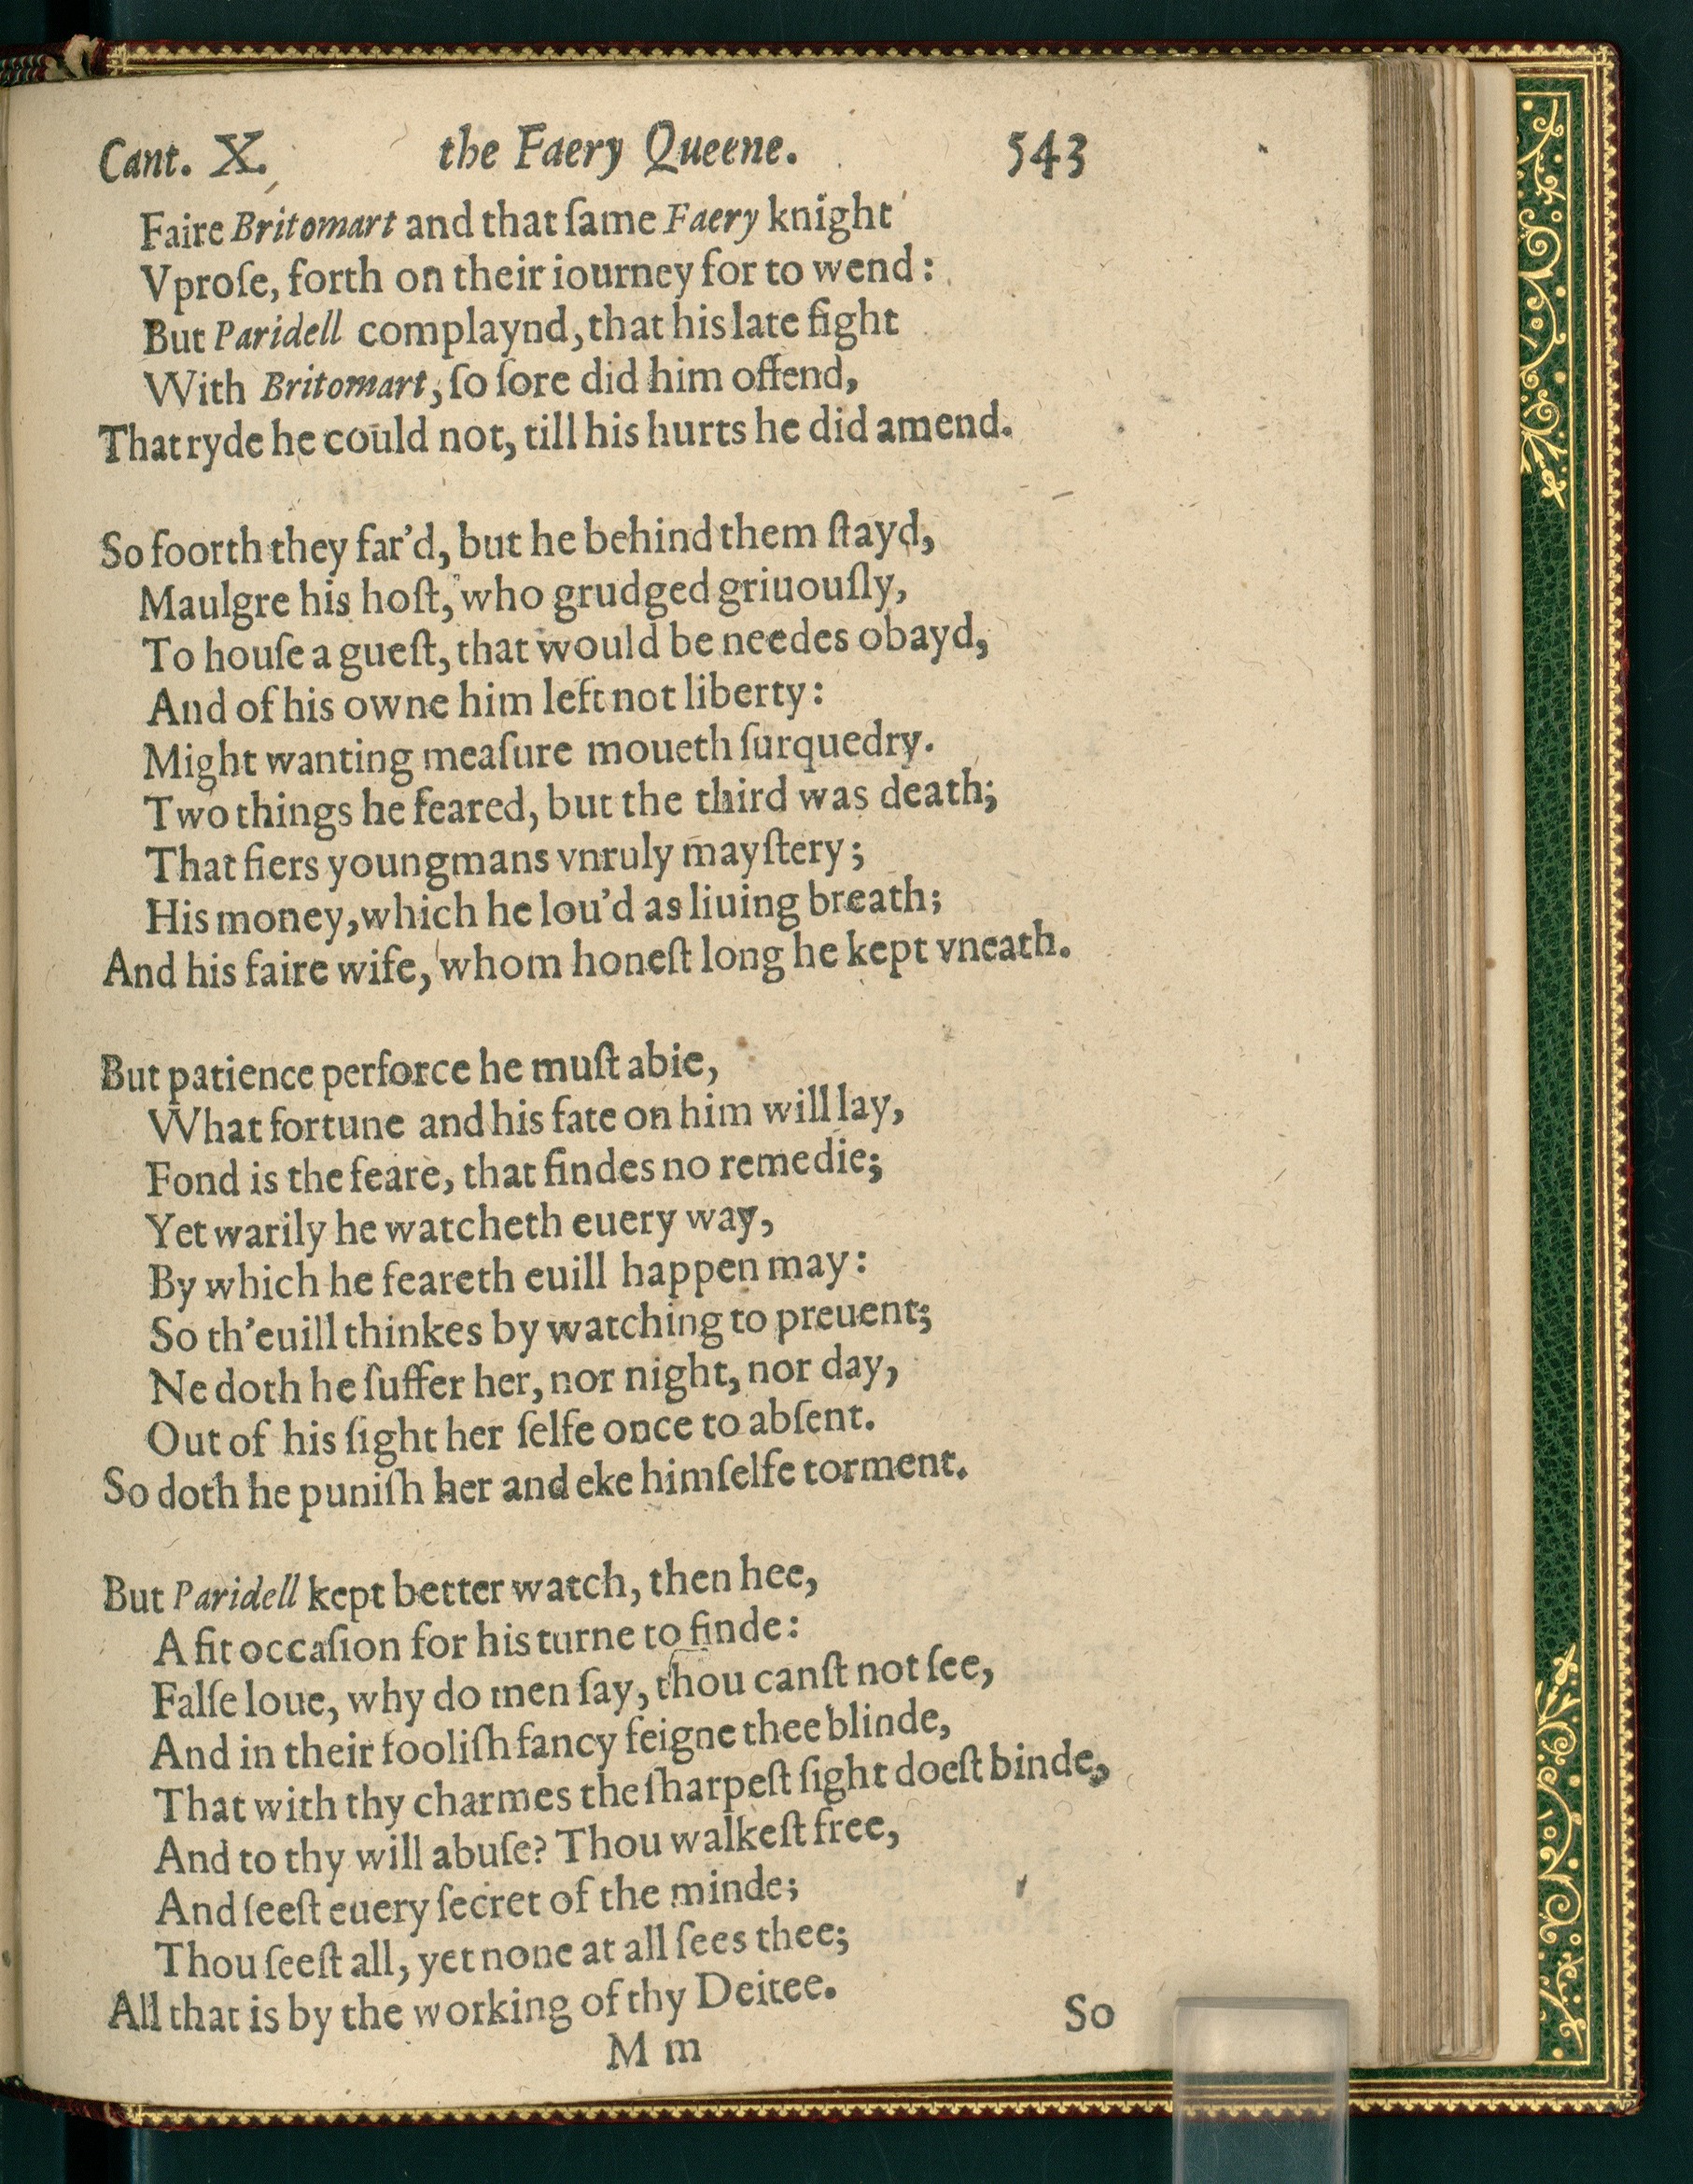 Cant. X. the Faery Queene. 543
Faire Britomart and that ſame Faery knight
Vproſe, forth on their iourney for to wend:
But Paridell complaynd, that his late fight
With Britomart, ſo ſore did him offend,
That ryde he could not, till his hurts he did amend.
So foorth they far'd, but he behind them ſtayd,
Maulgre his hoſt, who grudged griuouſly,
To houſe a gueſt, that would be needes obayd,
And of his owne him left not liberty:
Might wanting meaſure moueth ſurquedry.
Two things he feared, but the third was death;
That fiers youngmans vnruly mayſtery;
His money, which he lou'd as liuing breath;
And his faire wife, whom honeſt long he kept vneath.
But patience perforce he muſt abie,
What fortune and his fate on him will lay,
Fond is the feare, that findes no remedie;
Yet warily he watcheth euery way,
By which he feareth euill happen may:
So th'euill thinkes by watching to preuent;
Ne doth he ſuffer her, nor night, nor day,
Out of his ſight her ſelfe once to abſent.
So doth he puniſh her and eke himſelfe torment.
But Paridell kept better watch, then hee,
A fit occaſion for his turne to finde:
Falſe loue, why do men ſay, thou canſt not ſee,
And in their fooliſh fancy feigne thee blinde,
That with thy charmes the ſharpeſt ſight doeſt binde,
And to thy will abuſe? Thou walkeſt free,
And ſeeſt euery ſecret of the minde;
Thou ſeeſt all, yet none at all ſees thee;
All that is by the working of thy Deitee.
So
M m